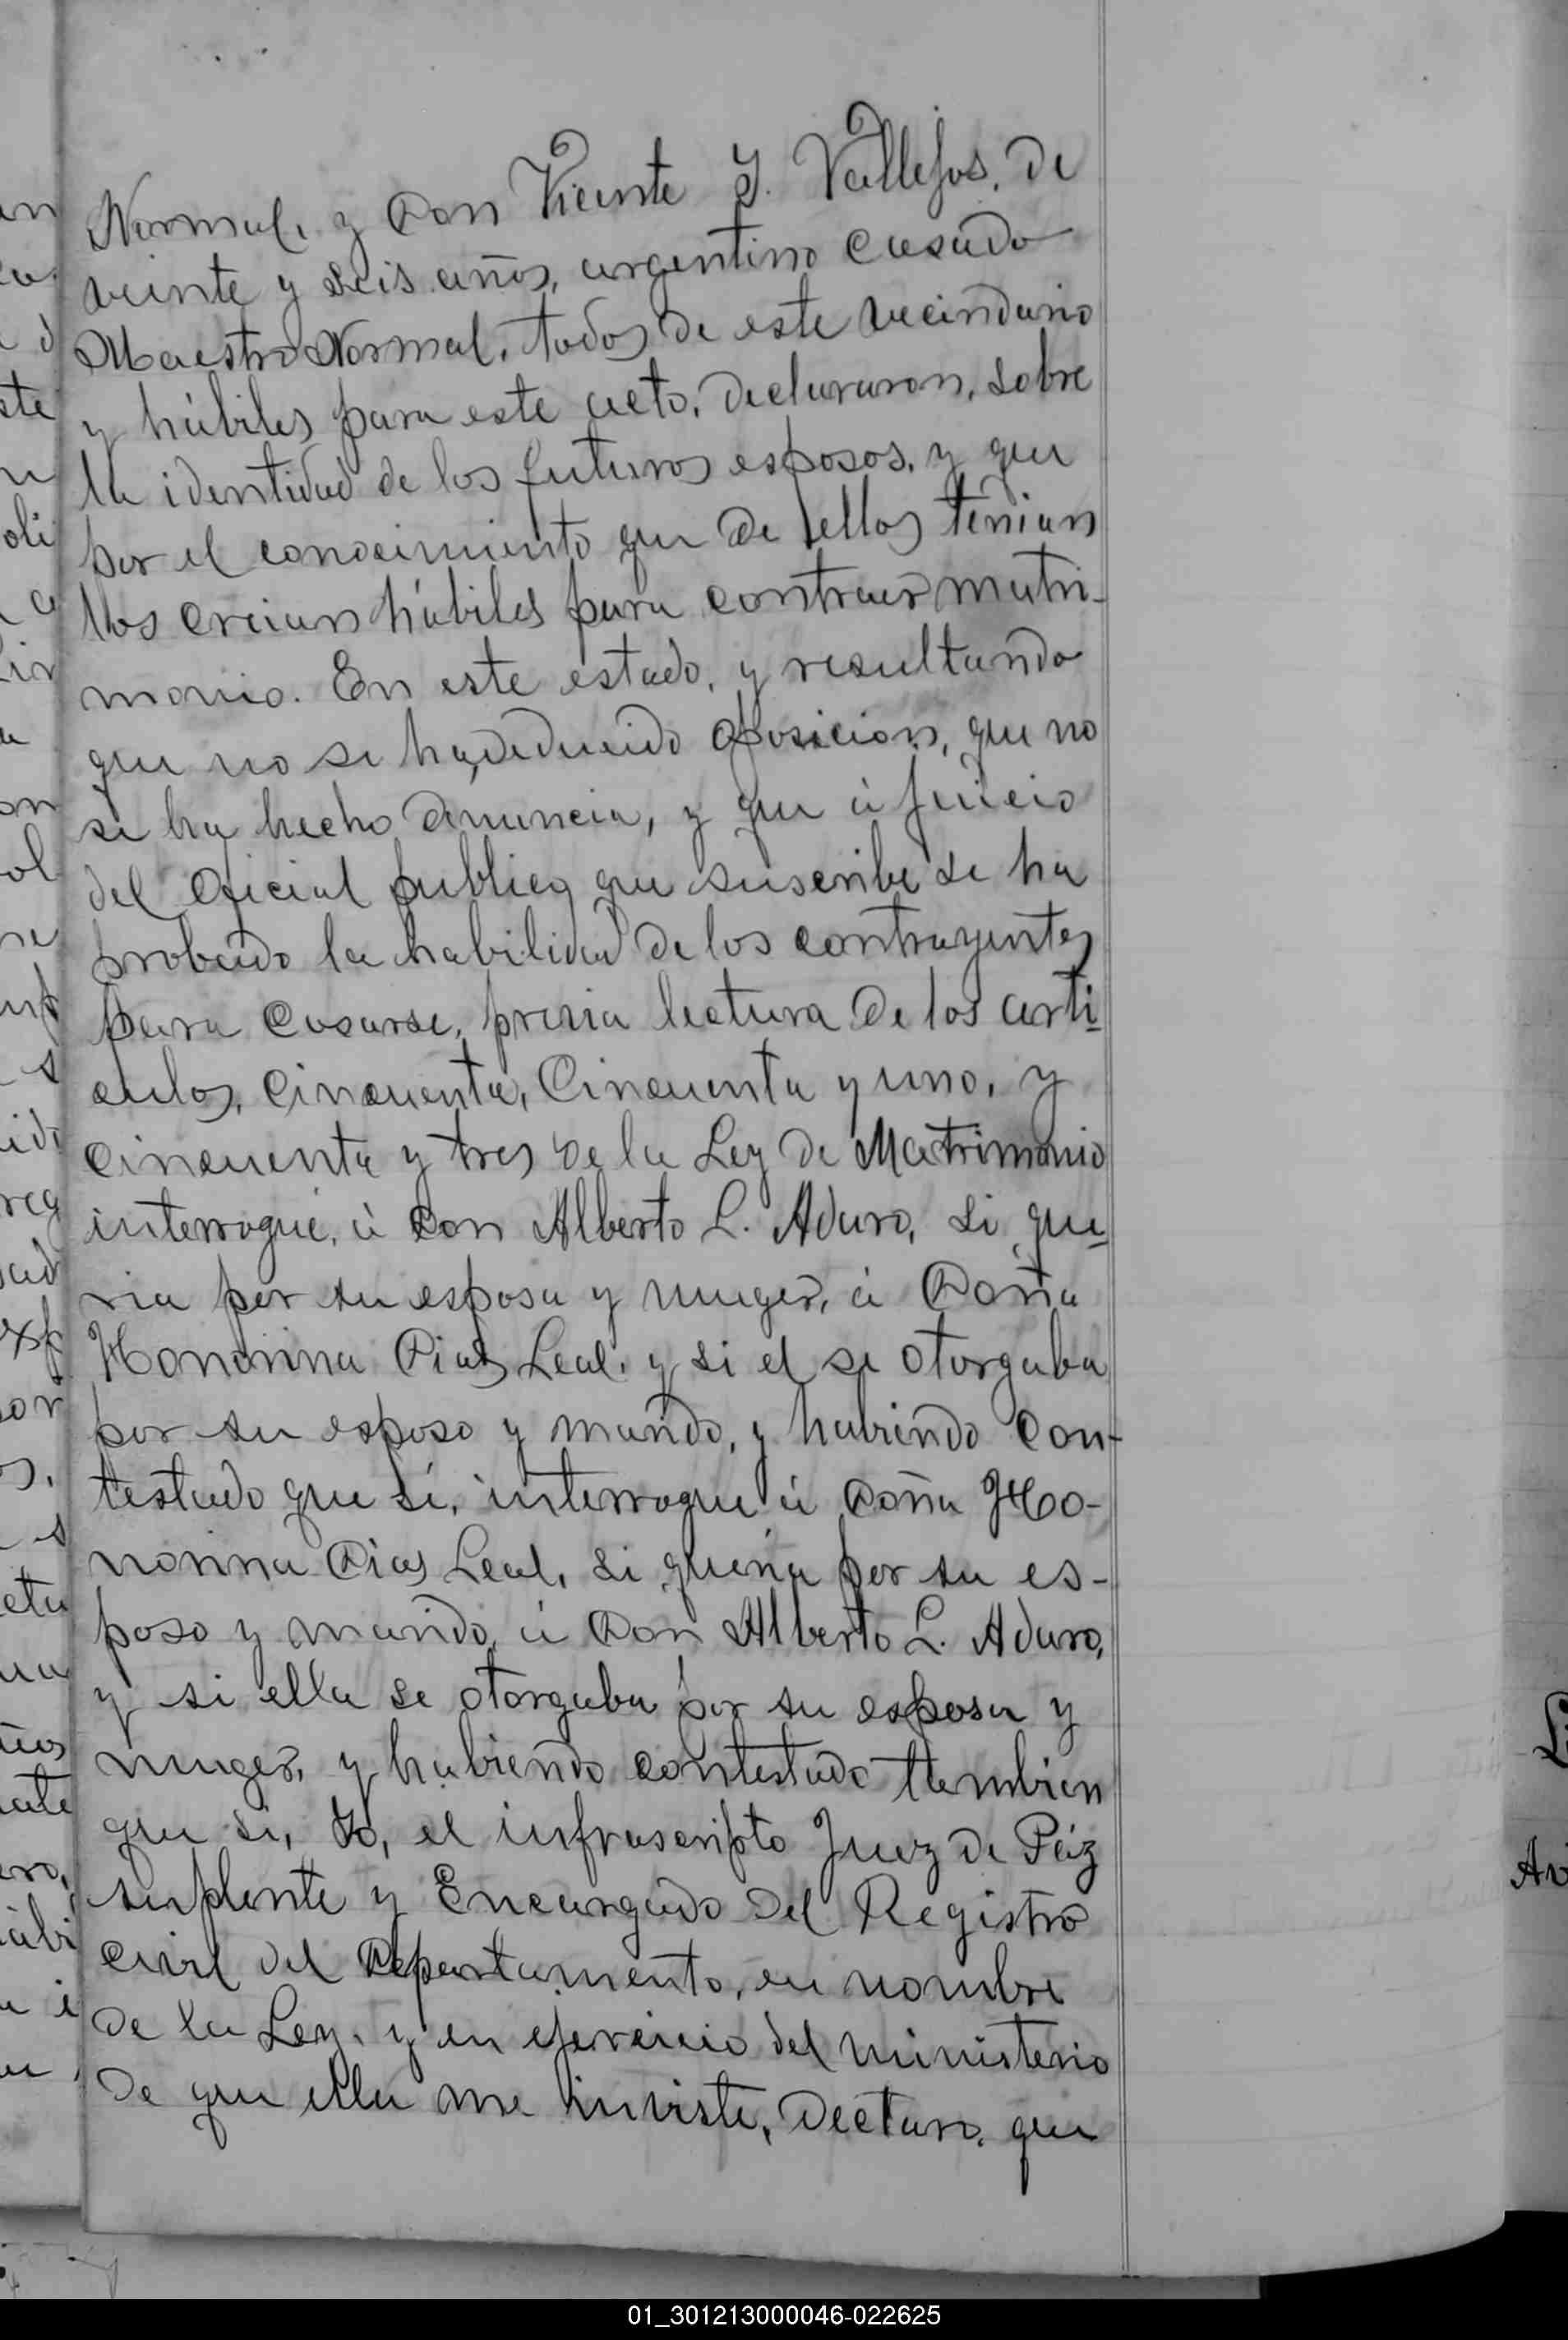 Normal, y Don Vicente J. Vallejos, de
veinte y seis años, argentino casado
Maestro Normal, todos de este vecindario
y hábiles para este acto, declararon, sobre
la identidad de los futuros esposos, y que
por el conocimiento que de ellos tenian
los creian hábiles para contraer matri-
monio. En este estado, y resultando
que no se ha deducido oposicion, que no
se ha hecho denuncia, y que á juicio
del Oficial publico que suscribe se ha
probado la habilidad de los contrayentes
para casarse, previa lectura de los arti-
culos, cincuenta, Cincuenta y uno, y
cincuenta y tres de la Ley de Matrimonio
interrogué, á Don Alberto L. Aduro, si que-
ria por su esposa y muger, á Doña
Honorina Dias Leal, y si el se otorgaba
por su esposo y marido, y habiendo con-
testado que sí, interrogué á Doña Ho-
norina Dias Leal, si queria por su es-
poso y marido, á Don Alberto L. Aduro,
y si ella se otorgaba por su esposa y
muger, y habiendo contestado tambien
que si, Yo, el infrascripto Juez de Páz
suplente y Encargado del Registro
Civil del Departamento, en nombre
de la Ley, y en ejercicio del ministerio
de que ella me inviste, Declaro, que
01_301213000046-022625